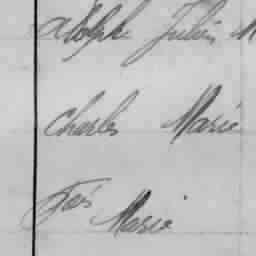 Adolphe Julien M
Charles Marie
Fois Marie